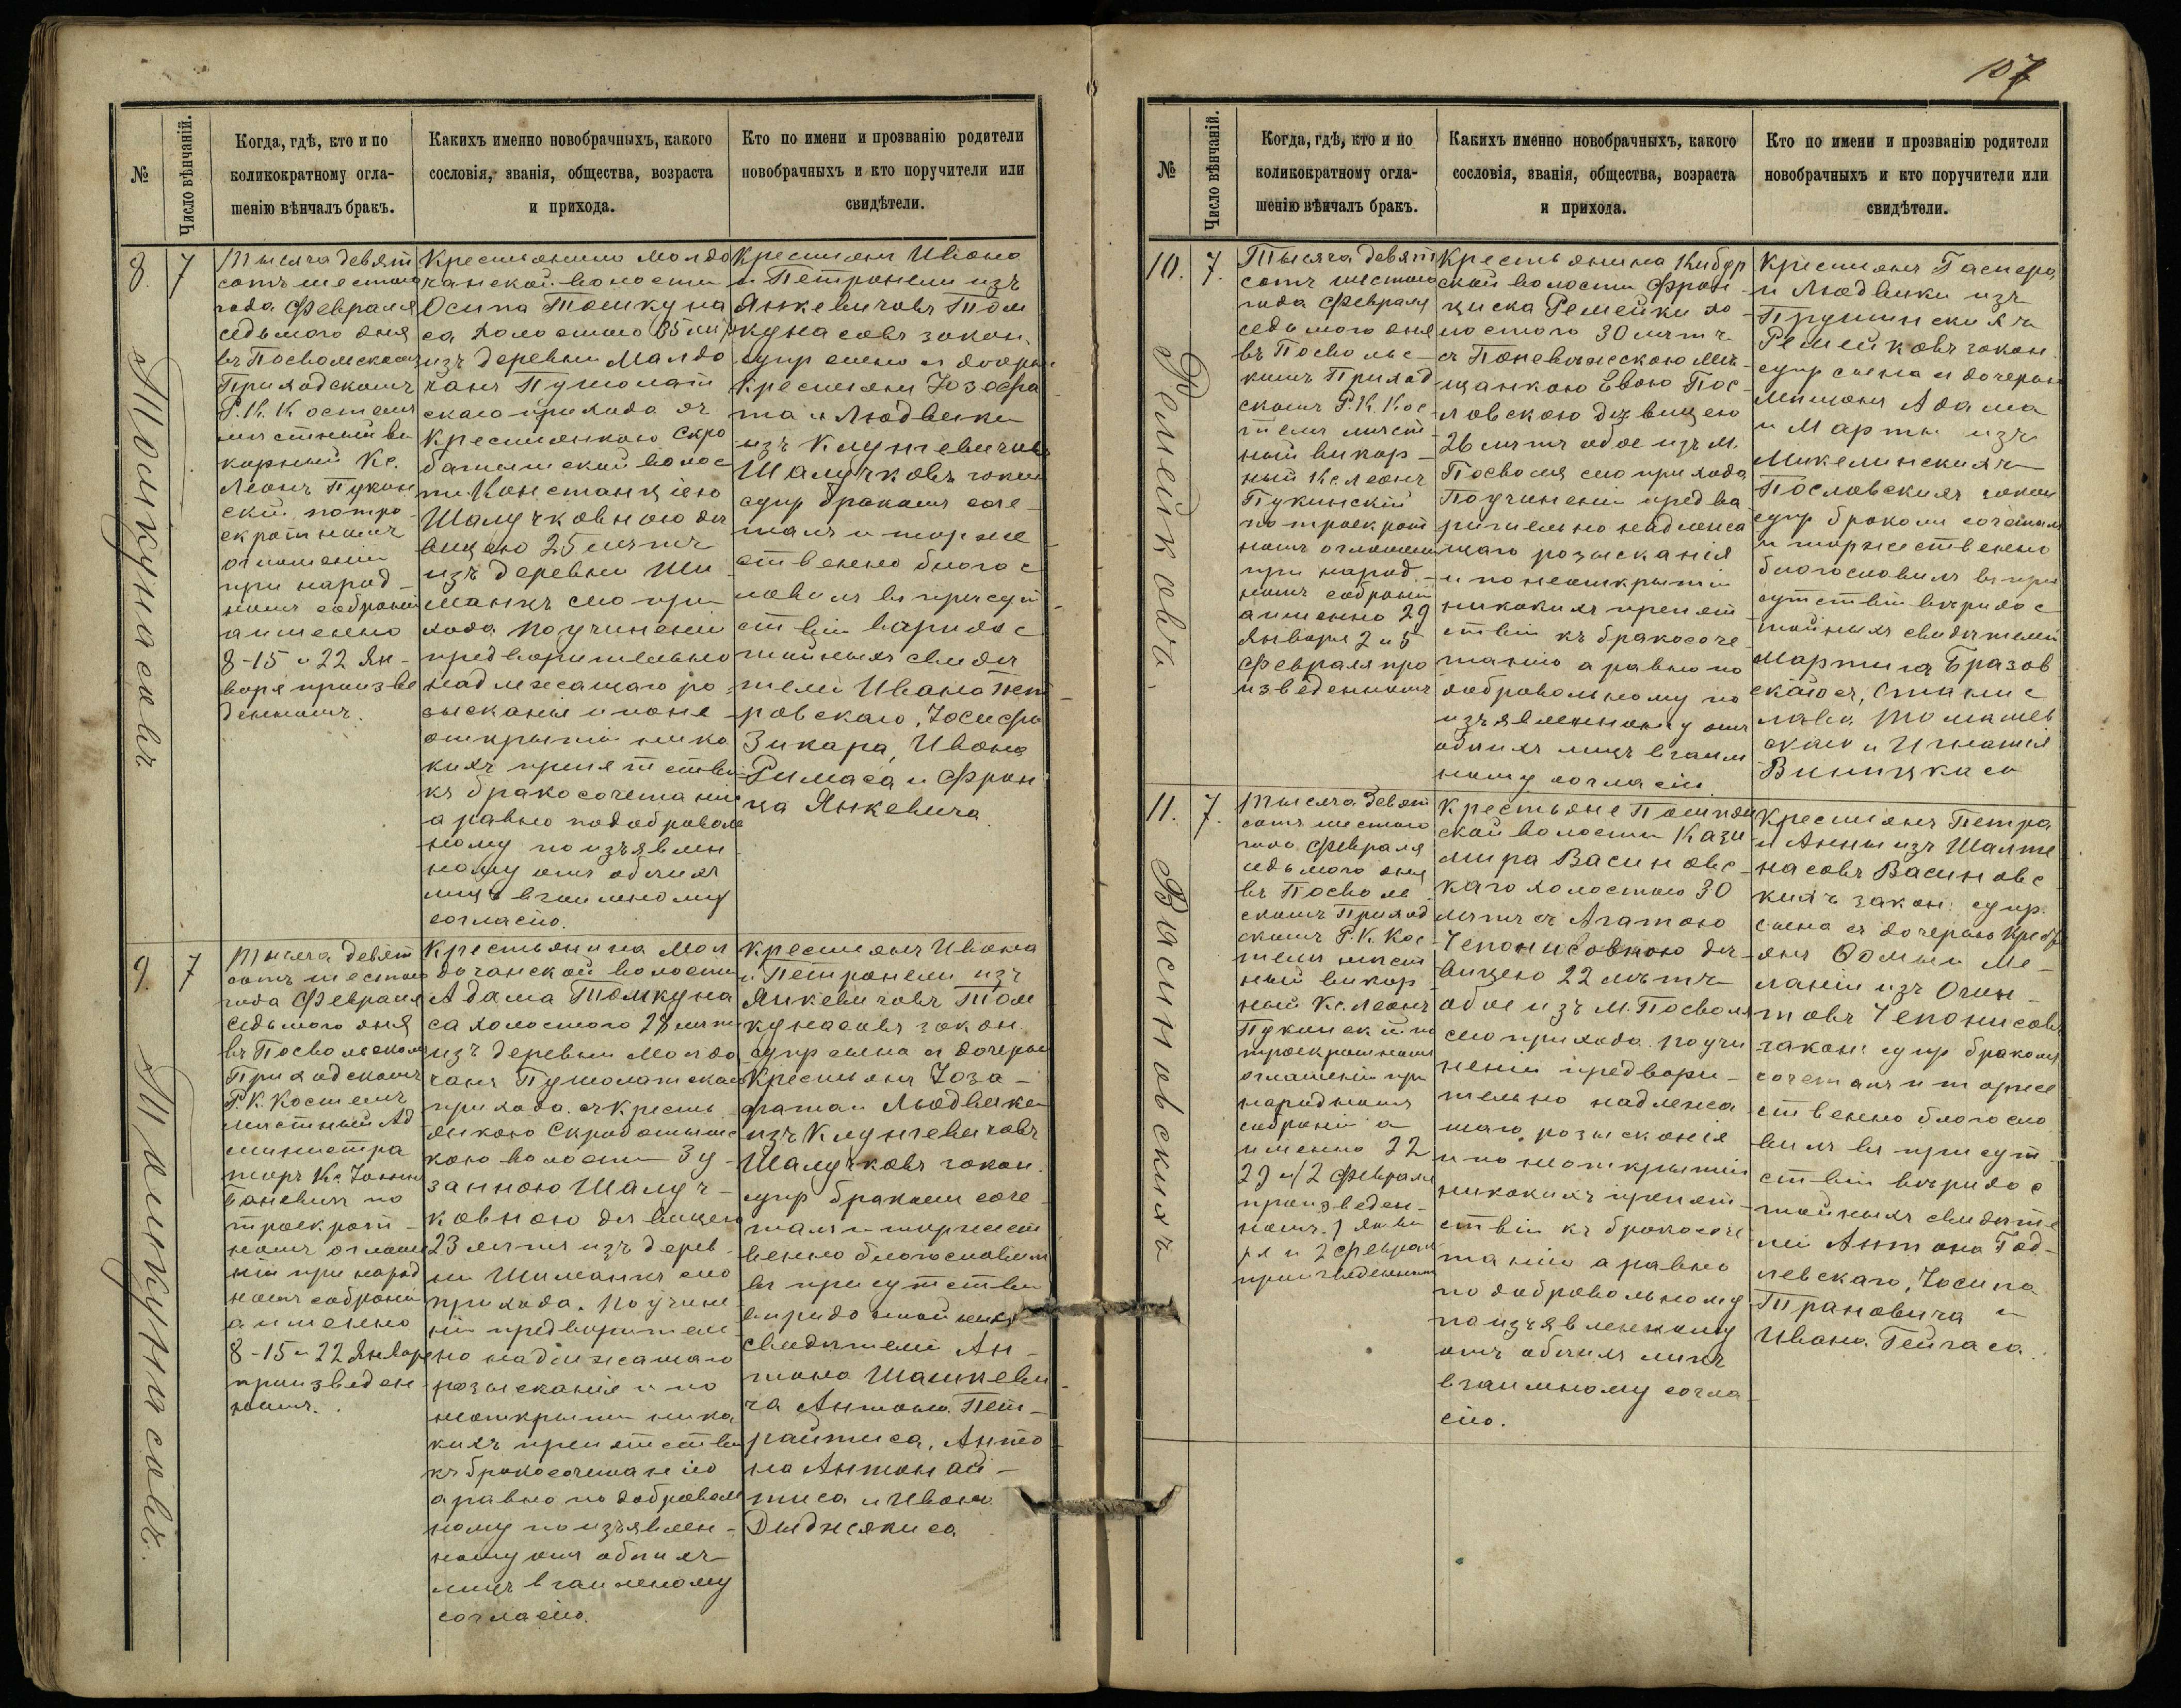 107
№
Число вѣнчаній.
Когда, гдѣ, кто и по
коликократному огла-
шенію вѣнчалъ бракъ.
Какихъ именно новобрачныхъ, какого
сословія, званія, общества, возраста
и прихода.
Кто по имени и прозванію родители
новобрачныхъ и кто поручители или
свидѣтели.
8.
7
Томкунасовъ
Тысяча девят
сотъ шестого
года Февраля
седьмого дня
въ Посвольскомъ
Приходскомъ
Р. К. Костелѣ
мѣстный ви
карный Кс.
Леонъ Пукин
скій по тро
екратномъ
оглашеніи
при народ-
номъ собраніи
а именно
8-15 и 22 Ян-
варя произве
денномъ.
Крестьянина Молдо
чанской волости
Осипа Томкуна
са холостого 35 лѣтъ
изъ деревни Малдо
чанъ Пушолат
скаго прихода съ
Крестьянкою Скро
батишской волос
ти Констанціею
Шалучковною дѣ
вицею 25 лѣтъ
изъ деревни Ши
манкъ сего при-
хода по учинени
предварительно
надлежащаго ро
зысканія и по не
открытіи ника
кихъ препятствій
къ бракосочетанію
а равно по доброволь
ному по изъявлен
ному отъ обоихъ
лицъ взаимному
согласію.
Крестьянъ Ивана
и Петронели изъ
Янкевичовъ Том
кунасовъ закон.
супр сына съ дочерью
Крестьянъ Іозафа
та и Людвики
изъ Клунгевичовъ
Шалучковъ закон
супр бракомъ соче-
талъ и торже
ственно благос
ловилъ въ присут
ствіи вѣридос
тойныхъ свидѣ
телей Ивана Пет
ровскаго, Іосифа
Зикара, Ивана
Римаса и Фран
ца Янкевича.
9.
7
Томкунасовъ.
Тысяча девят
сотъ шестого
года Февраля
седьмого дня
въ Посвольском
Приходскомъ
Р. К. Костелѣ
мѣстный Ад
министра
торъ Кс.
Баневичъ по
троекрат-
номъ оглаше
ніи при народ
номъ собраніи
а именно
8-15 и 22 Января
произведен
номъ.
Крестьянина Мол
дочанской волости
Адама Томкуна
са холостого 28 лѣтъ
изъ деревни Молдо
чанъ Пушолатскаго
прихода съ Кресть
янкою Скробатишс
кою волости Зу-
занною Шалуч-
ковною дѣвицею
23 лѣтъ изъ дерев
ни Шиманкъ сего
прихода. По учине
ніи предварител
но надлежащаго
розысканія и по
неоткрытіи ника
кихъ препятствій
къ бракосочетанію
а равно по доброволь
ному по изъявлен-
ному отъ обоихъ
лицъ взаимному
согласію.
Крестьянъ Ивана
и Петронели изъ
Янкевичовъ Том
кунасовъ закон.
супр сына съ дочерью
Крестьянъ Іоза-
фата и Людвики
изъ Клунгевичовъ
Шалучковъ закон.
супр бракомъ соче
талъ и торжест
венно благословилъ
въ присутствіи
вѣридостойныхъ
свидѣтелей Ан-
тона Шашкеви
ча Антона Пет-
райтиса, Анто
на Антонай-
тиса и Ивана
Дыджякиса
№
Число вѣнчаній.
Когда, гдѣ, кто и по
коликократному огла-
шенію вѣнчалъ бракъ.
Какихъ именно новобрачныхъ, какого
сословія, званія, общества, возраста
и прихода.
Кто по имени и прозванію родители
новобрачныхъ и кто поручители или
свидѣтели.
10.
7.
Ремейковъ.
Тысяча девят
сотъ шестого
года Февраля
седьмого дня
въ Посволь-
скомъ Приход
скомъ Р. К. Кос
телѣ мѣст
ный викар-
ный Кс Леонъ
Пукинскій
по троекрат
номъ оглашени
при народ-
номъ собраніи
а именно 29
Января 2 и 5
Февраля про
изведенномъ
Крестьянина Кибур
ской волости Фран
циска Ремейки хо
лостого 30 лѣтъ
съ Поневѣжескою мѣ
щанкою Евою Пос
ловскою дѣвицею
26 лѣтъ обое изъ м.
Посволя сего прихода
По учинени предва
рительно надлежа
щаго розысканія
и по неоткрытіи
никакихъ препят
ствій къ бракосоче
танію а равно по
добровольному по
изъявленному отъ
обоихъ лицъ взаим
ному согласію.
Крестьянъ Гаспера
и Людвики изъ
Прушинскихъ
Ремейковъ закон
супр сына съ дочерью
Мѣщанъ Адама
и Марты изъ
Микелинскихъ
Пословскихъ закон
супр бракомъ сочеталъ
и торжественно
благословилъ въ при
сутствіи вѣридос
тойныхъ свидѣтелей
Мартина Бразов
скаго, Станис
лава Томашев
скаго и Игнатія
Виницкаго
11.
7.
Васиновскихъ
Тысяча девят
сотъ шестого
года Февраля
седьмого дня
въ Посволь
скомъ Приход
скомъ Р. К. Кос
телѣ мѣст
ный викар
ный Кс. Леонъ
Пукинскій по
троекратномъ
оглашеніи при
народномъ
собраніи а
именно 22
29 и 2 Февраля
произведен-
номъ.
ря и 2 Февраля
произведенномъ
Крестьяне
ской волости Кази
мира Васиновс
каго холостого 30
лѣтъ съ Агатою
Чепонисовною дѣ-
вицею 22 лѣтъ
обое изъ М. Посволя
сего прихода. По учи
неніи предвари-
тельно надлежа
щаго розысканія
и по неоткрытіи
никакихъ препят-
ствій къ бракосоче
танію а равно
по добровольному
по изъявленному
отъ обоихъ лицъ
взаимному согла
сію.
Крестьянъ Петра
и Анны изъ
насовъ Васиновс
кихъ закон: супр.
сына съ дочерью Кресть
янъ Фомы и Ме-
ланіи изъ
Чепонисовъ
закон: супр бракомъ
сочеталъ и торже
ственно благосло
вилъ въ присут
ствіи вѣридос
тойныхъ свидѣте
лей Антона Год-
левскаго, Іосипа
Трановича и
Ивана Гейгаса.